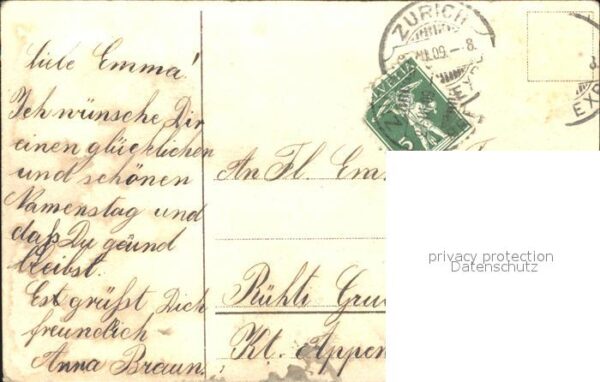 liebe Emma!
Ich wünsche Dir
einen glücklichen
und schönen
Namenstag und
daß Du gesund
bleibst.
Es grüßt Dich
freundlich
Anna Braun.
ZÜRICH
VII.09.–8.
HELVETIA
5
EXP
An Fl. Em
privacy protection
Datenschutz
Rühti Gru
Kt. Appen